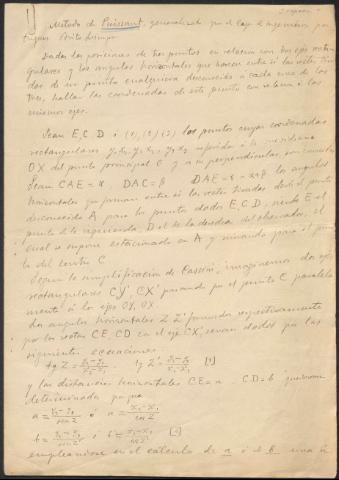 Método de Puissant, generalizado por el Cap. de ingenieros Don
Dadas las posiciones de tres puntos en relación con dos ejes rectan-
gulares y los ángulos horizontales que hacen entre sí las visuales tira-
das de un punto cualquiera desconocido a cada uno de los
tres, hallar las coordenadas de este punto con relación a los
mismos ejes.
Sean E, C, D ó (1), (2), (3) los puntos cuyas coordenadas
rectangulares referidas á la meridiana
OX del punto principal O y a su perpendicular, son conocidas
Sean CAE = α DAC = β DAE = α+β los ángulos
horizontales que forman entre sí las visuales tiradas desde el punto
desconocido A para los puntos dados E, C, D, siendo E el
punto de la izquierda, D el de la derecha del observador, el
cual se supone estacionado en A y mirando para el pun-
to del centro C
Segun la simplificación de Cassini, imaginemos dos ejes
rectangulares CY', CX' pasando por el punto C paralela-
mente á los ejes OY, OX.
Los ángulos horizontales Z Z' formados respectivamente
por las rectas CE, CD con el eje CX', seran dados por las
siguientes ecuaciones
[1]
y las distancias horizontales CE = a CD = b quedaran
determinadas por
a = ó a =
b = ó b = [2]
empleandose en el cálculo de a ó de b una ú